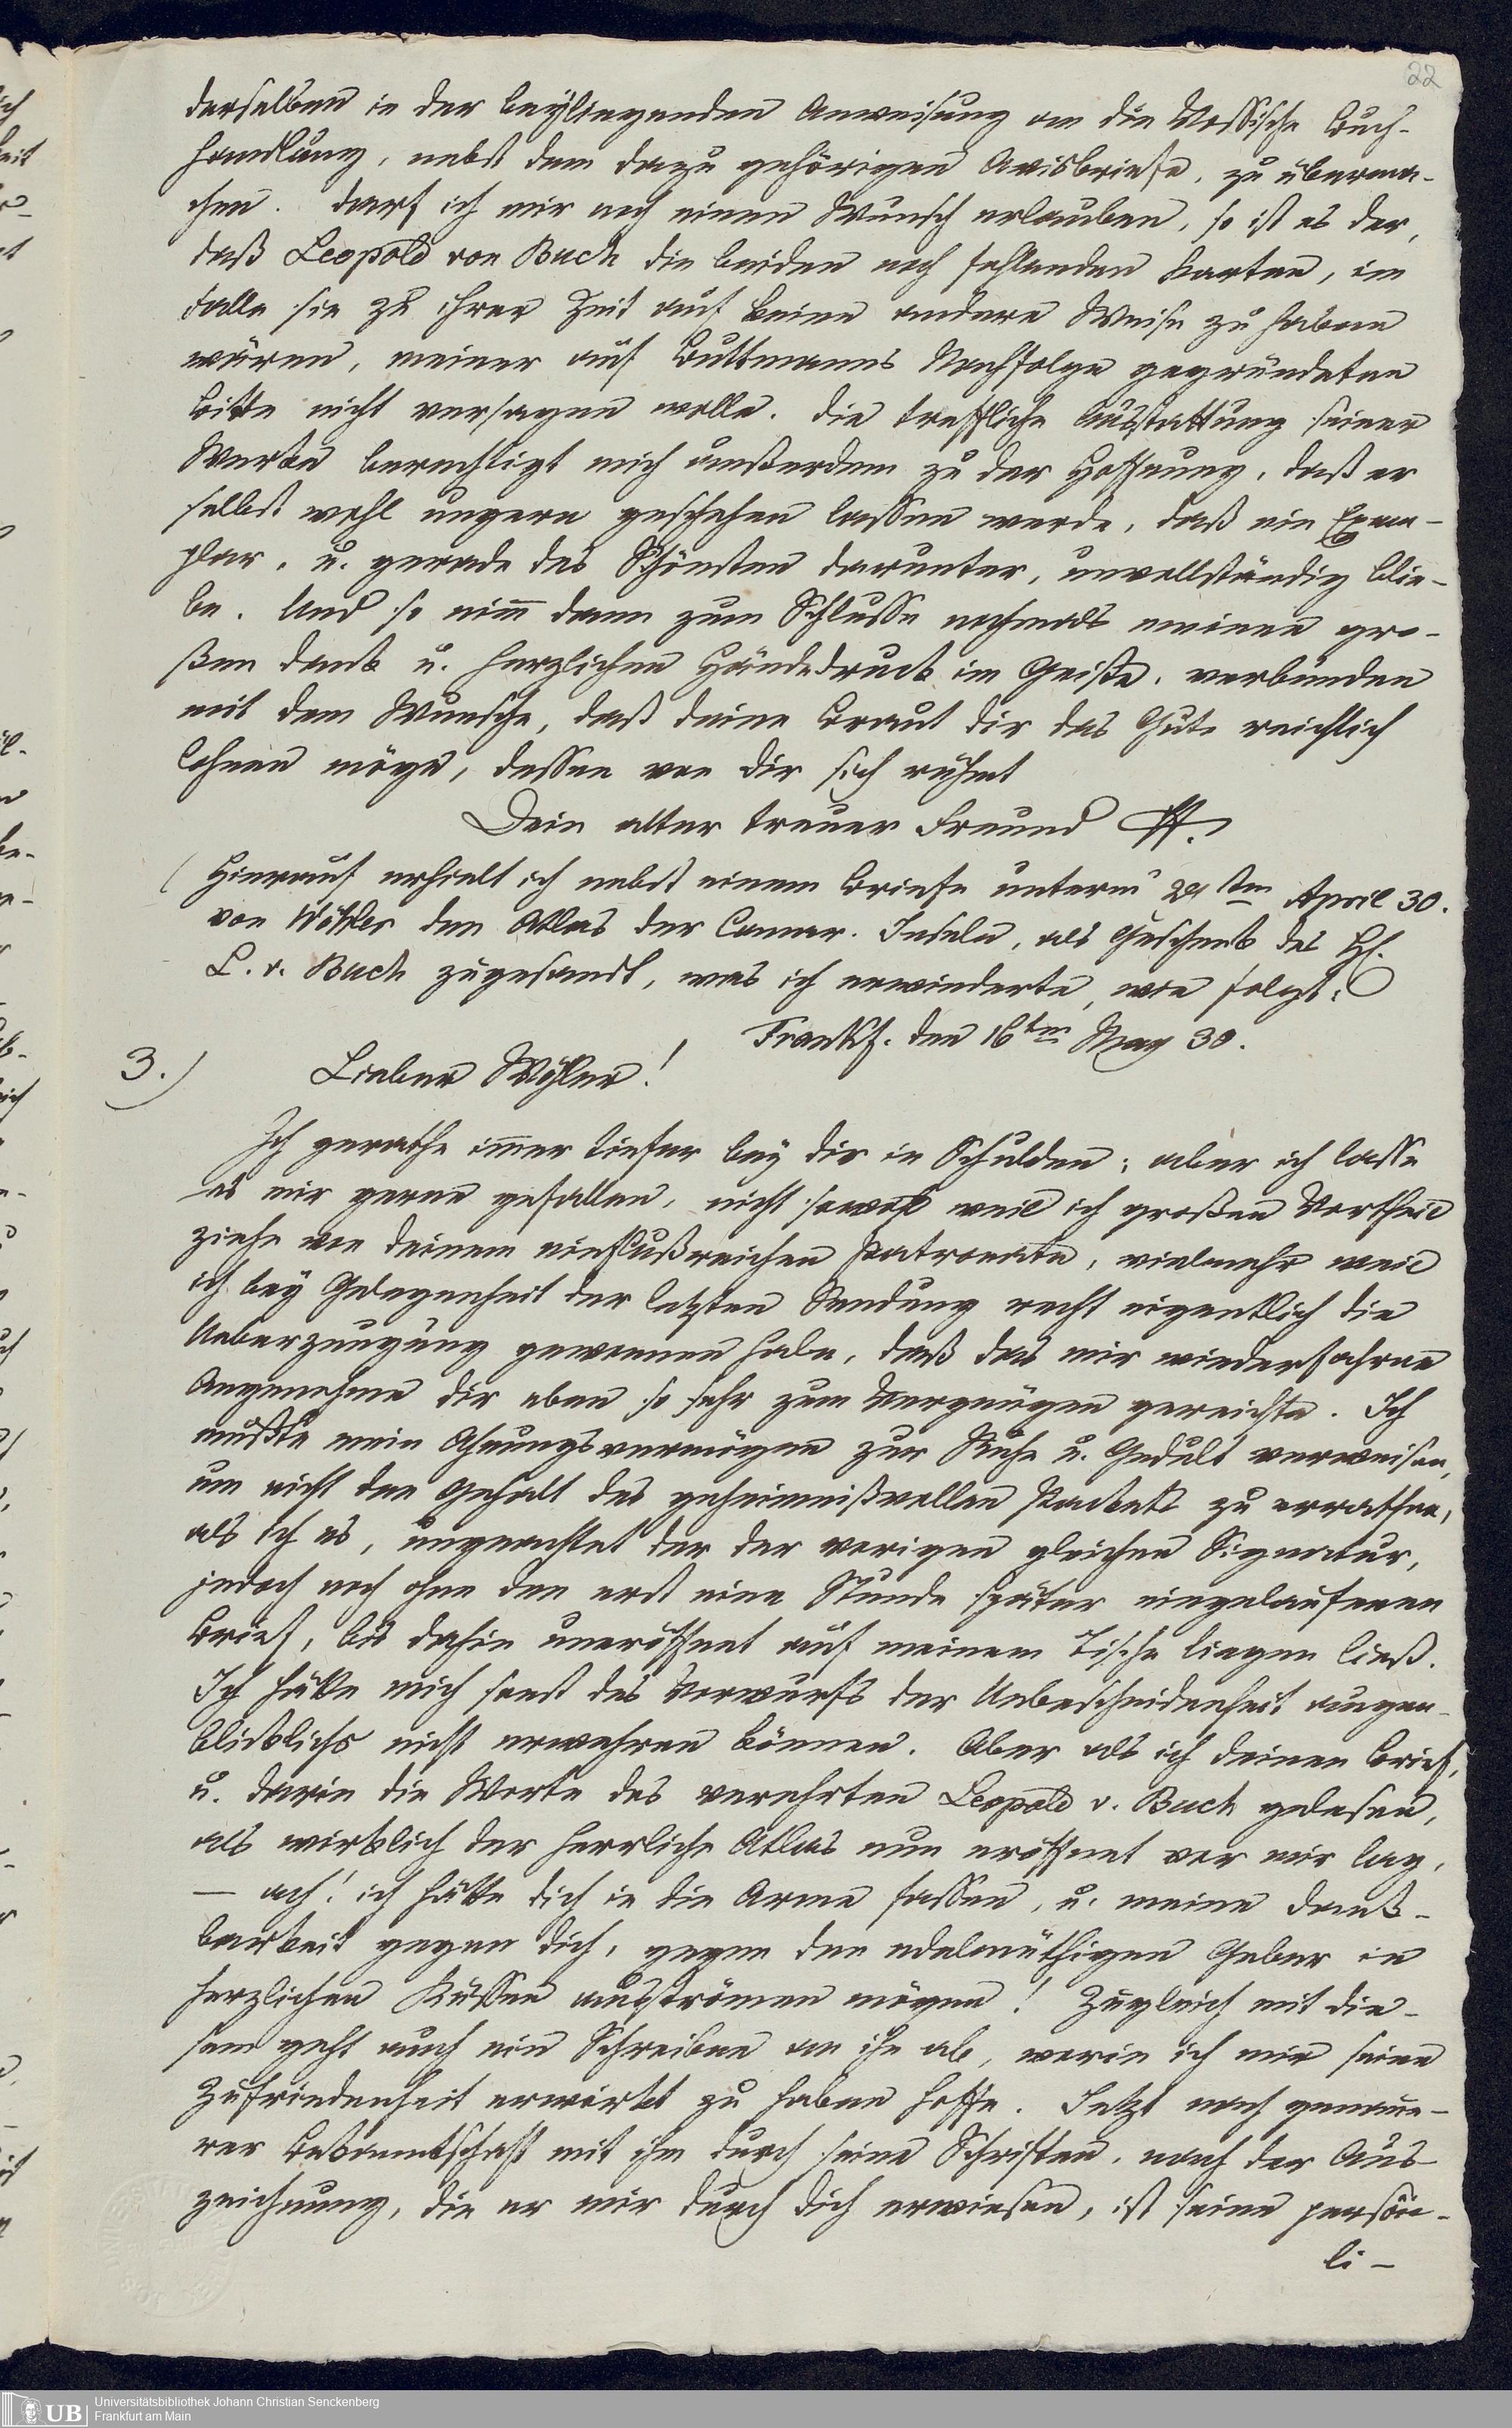 22
derselben in der beyliegenden Anweisung an die Vossische Buch-
handlung, nebst dem dazu gehörigen Avisbriefe, zu überma-
chen. Darf ich mir noch einen Wunsch erlauben, so ist es der,
daß Leopold von Buch die beiden noch fehlenden Karten, im
Falle sie zu ihrer Zeit auf keine andere Weise zu haben
wären, meiner auf Buttmanns Nachfolge gegründeten
Bitte nicht versagen wolle. Die treffliche Ausstattung seiner
Werke berechtigt mich außerdem zu der Hoffnung, daß er
selbst wohl ungern geschehen lassen werde, daß ein Exem-
plar, u. gerade des Schönsten darunter, unvollständig blie-
be. Und so nim̅ dann zum Schlusse nochmals meinen gro-
ßen Dank u. herzlichen Händedruck im Geiste, verbunden
mit dem Wunsche, daß deine Braut dir das Gute reichlich
lohnen möge, dessen von dir sich rühmt
Dein alter treuer Freund
(Hierauf erhielt ich nebst einem Briefe unterm April 30.
von Wöhler den Atlas der Canar. Inseln, als Geschenk des H.
L. v. Buch zugesandt, was ich erwiederte, wie folgt:)
Frankf. den 16ten May 30.
3.) Lieber Wöhler!
Ich gerathe im̅er tiefer bey dir in Schulden; aber ich lasse
es mir gerne gefallen, nicht sowohl weil ich großen Vortheil
ziehe von deinem einflußreichen Patronate, vielmehr weil
ich bey Gelegenheit der letzten Sendung recht eigentlich die
Ueberzeugung gewonnen habe, daß das mir wiederfahrne
Angenehme dir eben so sehr zum Vergnügen gereichte. Ich
mußte mein Ahnungsvermögen zur Ruhe u. Gedult verweisen,
um nicht den Gehalt des geheimnißvollen Packets zu errathen,
als ich es, ungeachtet der der vorigen gleichen Signatur,
jedoch noch ohne den erst eine Stunde später eingelaufenen
Brief, bis dahin uneröffnet auf meinem Tische liegen ließ.
Ich hätte mich sonst des Vorwurfs der Unbescheidenheit augen-
blicklichs nicht erwehren können. Aber als ich deinen Brief,
u. darin die Worte des verehrten Leopold v. Buch gelesen,
als wirklich der herrliche Atlas nun eröffnet vor mir lag,
— ach! ich hätte dich in die Arme fassen, u. meine Dank-
barkeit gegen dich, gegen den edelmüthigen Geber in
herzlichen Küssen ausströmen mögen! Zugleich mit die-
sem geht auch ein Schreiben an ihn ab, worin ich mir seine
Zufriedenheit erwirkt zu haben hoffe. Jetzt nach genaue-
rer Bekanntschaft mit ihm durch seine Schriften, nach der Aus-
zeichnung, die er mir durch dich erwiesen, ist seine persön-
li-
UB
Universitätsbibliothek Johann Christian Senckenberg
Frankfurt am Main